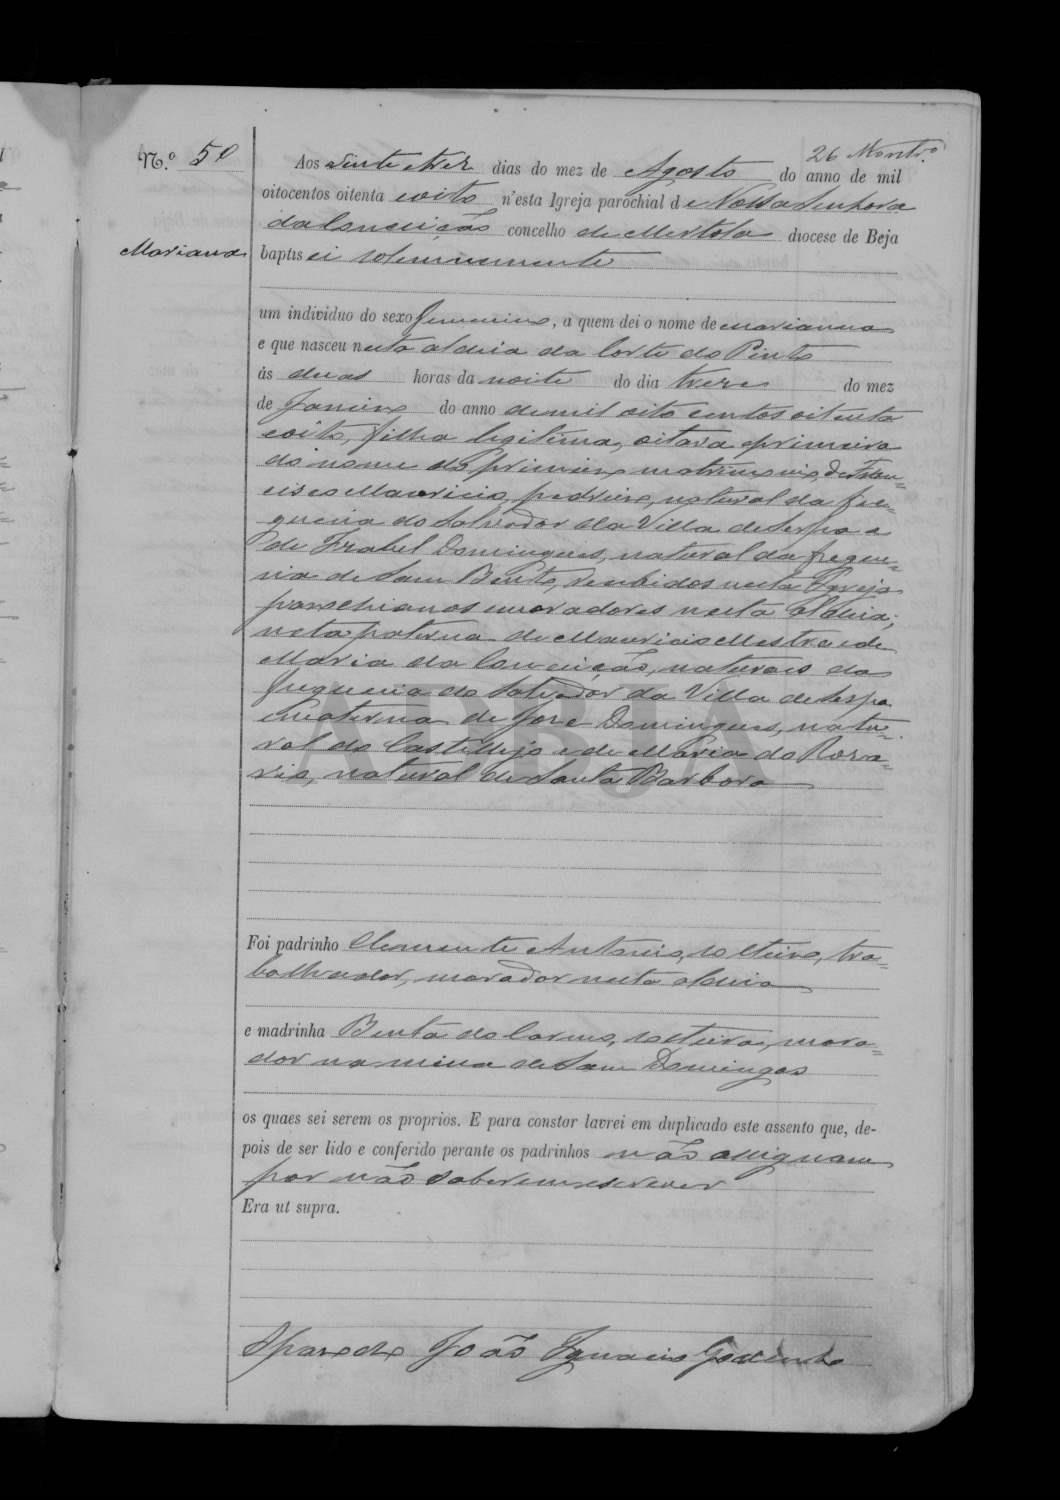 26 Montr.º
N.º 50
Aos vinte e trez dias do mez de Agosto do anno de mil
oitocentos oitenta e oito n'esta Igreja parochial de Nossa Senhora
da Conceição concelho de Mertola diocese de Beja
Marianna
baptisei solemnemente
um individuo do sexo femenino, a quem dei o nome de Marianna
e que nasceu nesta aldeia da Corte do Pinto
ás duas horas da noite do dia treze do mez
de Janeiro do anno de mil oito centos oitenta
e oito, filha legitima, oitava e primeira
do nome do primeiro matrimonio, de Fran=
cisco Mauricio, pedreiro, natural da fre=
guezia do Salvador da Villa de Serpa e
de Izabel Domingues, natural da fregue=
zia de Sam Bento, recebidos nesta Igreja
parochianos e moradores nesta aldeia;
neta paterna de Mauricio Mestre e de
Maria da Conceição, naturaes da
freguezia do Salvador da Villa de Serpa
e materna de José Domingues, natu=
ral do Castellejo e de Maria do Roza=
rio, natural de Santa Barbora
ADBJA
Foi padrinho Clemente Antonio, solteiro, tra=
balhador, morador nesta aldeia
e madrinha Benta do Carmo, solteira, mora=
dor na mina de Sam Domingos
os quaes sei serem os proprios. E para constar lavrei em duplicado este assento que, de-
pois de ser lido e conferido perante os padrinhos não assignam
por não saberem escrever
Era ut supra.
O parocho João Ignacio Godinho